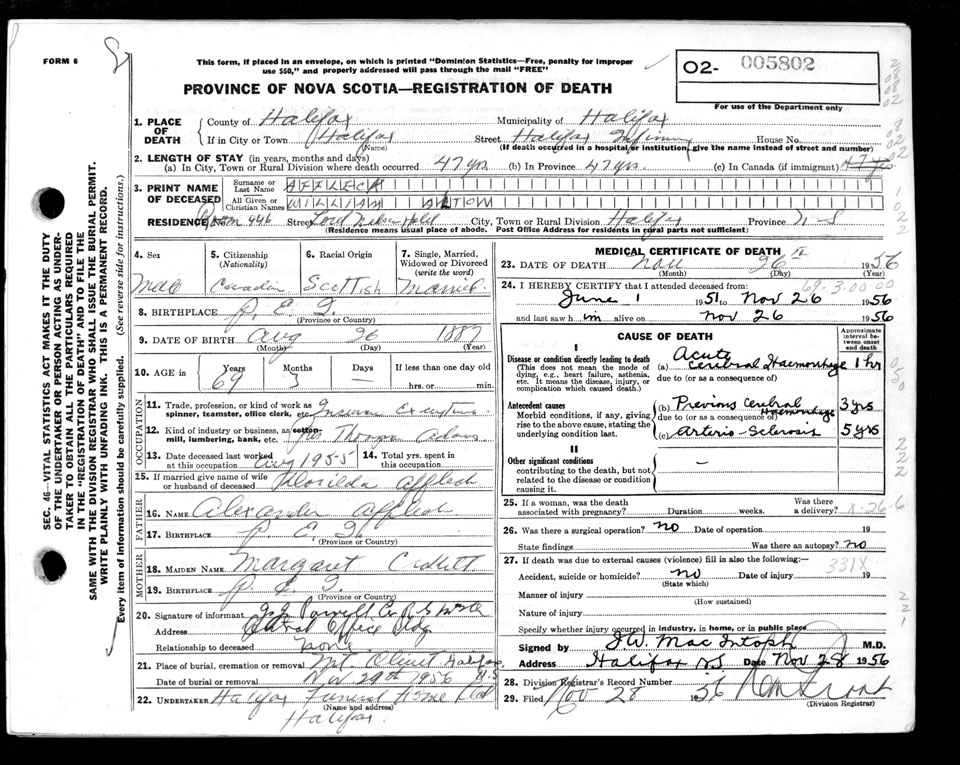 FORM 6
This form, if placed in an envelope, on which is printed "Dominion Statistics—Free, penalty for improper
use $50," and properly addressed will pass through the mail "FREE"
PROVINCE OF NOVA SCOTIA—REGISTRATION OF DEATH
02- 005802
For use of the Department only
SEC. 46—VITAL STATISTICS ACT MAKES IT THE DUTY
OF THE UNDERTAKER OR PERSON ACTING AS UNDER-
TAKER TO OBTAIN ALL THE PARTICULARS REQUIRED
IN THE "REGISTRATION OF DEATH" AND TO FILE THE
SAME WITH THE DIVISION REGISTRAR WHO SHALL ISSUE THE BURIAL PERMIT.
WRITE PLAINLY WITH UNFADING INK. THIS IS A PERMANENT RECORD.
Every item of information should be carefully supplied. (See reverse side for instructions.)
1. PLACE OF DEATH
County of Halifax Municipality of Halifax
If in City or Town Halifax Street Halifax Infirmary House No.
(Name) (If death occurred in a hospital or institution, give the name instead of street and number)
2. LENGTH OF STAY (in years, months and days)
(a) In City, Town or Rural Division where death occurred 47 yrs. (b) In Province 47 yrs. (c) In Canada (if immigrant) 47 yrs
3. PRINT NAME OF DECEASED
Surname or Last Name AFFLECK
All Given or Christian Names WILLIAM ALTOW
RESIDENCE Room 446 Street Lord Nelson Hotel City, Town or Rural Division Halifax Province N S
(Residence means usual place of abode. Post Office Address for residents in rural parts not sufficient)
4. Sex
5. Citizenship (Nationality)
6. Racial Origin
7. Single, Married, Widowed or Divorced (write the word)
Male Canadian Scottish Married
8. BIRTHPLACE P. E. I.
(Province or Country)
9. DATE OF BIRTH Aug 26 1887
(Month) (Day) (Year)
10. AGE IN Years Months Days If less than one day old
69 3 — hrs. or min.
OCCUPATION
11. Trade, profession, or kind of work as
spinner, teamster, office clerk, etc.
12. Kind of industry or business, as cotton-
mill, lumbering, bank, etc.
13. Date deceased last worked
at this occupation Aug 1955
14. Total yrs. spent in
this occupation
15. If married give name of wife
or husband of deceased Affleck
FATHER
16. NAME Alexander Affleck
17. BIRTHPLACE P. E. I.
(Province or Country)
MOTHER
18. MAIDEN NAME Margaret
19. BIRTHPLACE P. E. I.
(Province or Country)
20. Signature of informant
Address Office Bldg
Relationship to deceased none
21. Place of burial, cremation or removal Mt. Olivet Halifax
Date of burial or removal Nov 29th 1956 N.S
22. UNDERTAKER Halifax Funeral Home Ltd
(Name and address)
Halifax
MEDICAL CERTIFICATE OF DEATH
23. DATE OF DEATH Nov 26 1956
(Month) (Day) (Year)
69-3-00-00
24. I HEREBY CERTIFY that I attended deceased from:
June 1 1951 to Nov 26 1956
and last saw him alive on Nov 26 1956
CAUSE OF DEATH
Approximate interval between onset and death
I
Disease or condition directly leading to death
(This does not mean the mode of dying, e.g., heart failure, asthenia, etc. It means the disease, injury, or complication which caused death.)
(a) Acute Cerebral Haemorrhage 1 hr
due to (or as a consequence of)
Antecedent causes
Morbid conditions, if any, giving rise to the above cause, stating the underlying condition last.
(b) Previous Cerebral Haemorrhage 3 yrs
due to (or as a consequence of)
(c) Arterio-Sclerosis 5 yrs
II
Other significant conditions
contributing to the death, but not related to the disease or condition causing it.
—
25. If a woman, was the death
associated with pregnancy? Duration weeks. Was there a delivery?
X-266
26. Was there a surgical operation? no Date of operation 19
State findings Was there an autopsy? no
27. If death was due to external causes (violence) fill in also the following:—
331X
Accident, suicide or homicide? no Date of injury 19
(State which)
Manner of injury
(How sustained)
Nature of injury
Specify whether injury occurred in industry, in home, or in public place
Signed by J W MacIntosh M.D.
Address Halifax N.S Date Nov 28 1956
28. Division Registrar's Record Number
29. Filed Nov 28 1956
(Division Registrar)